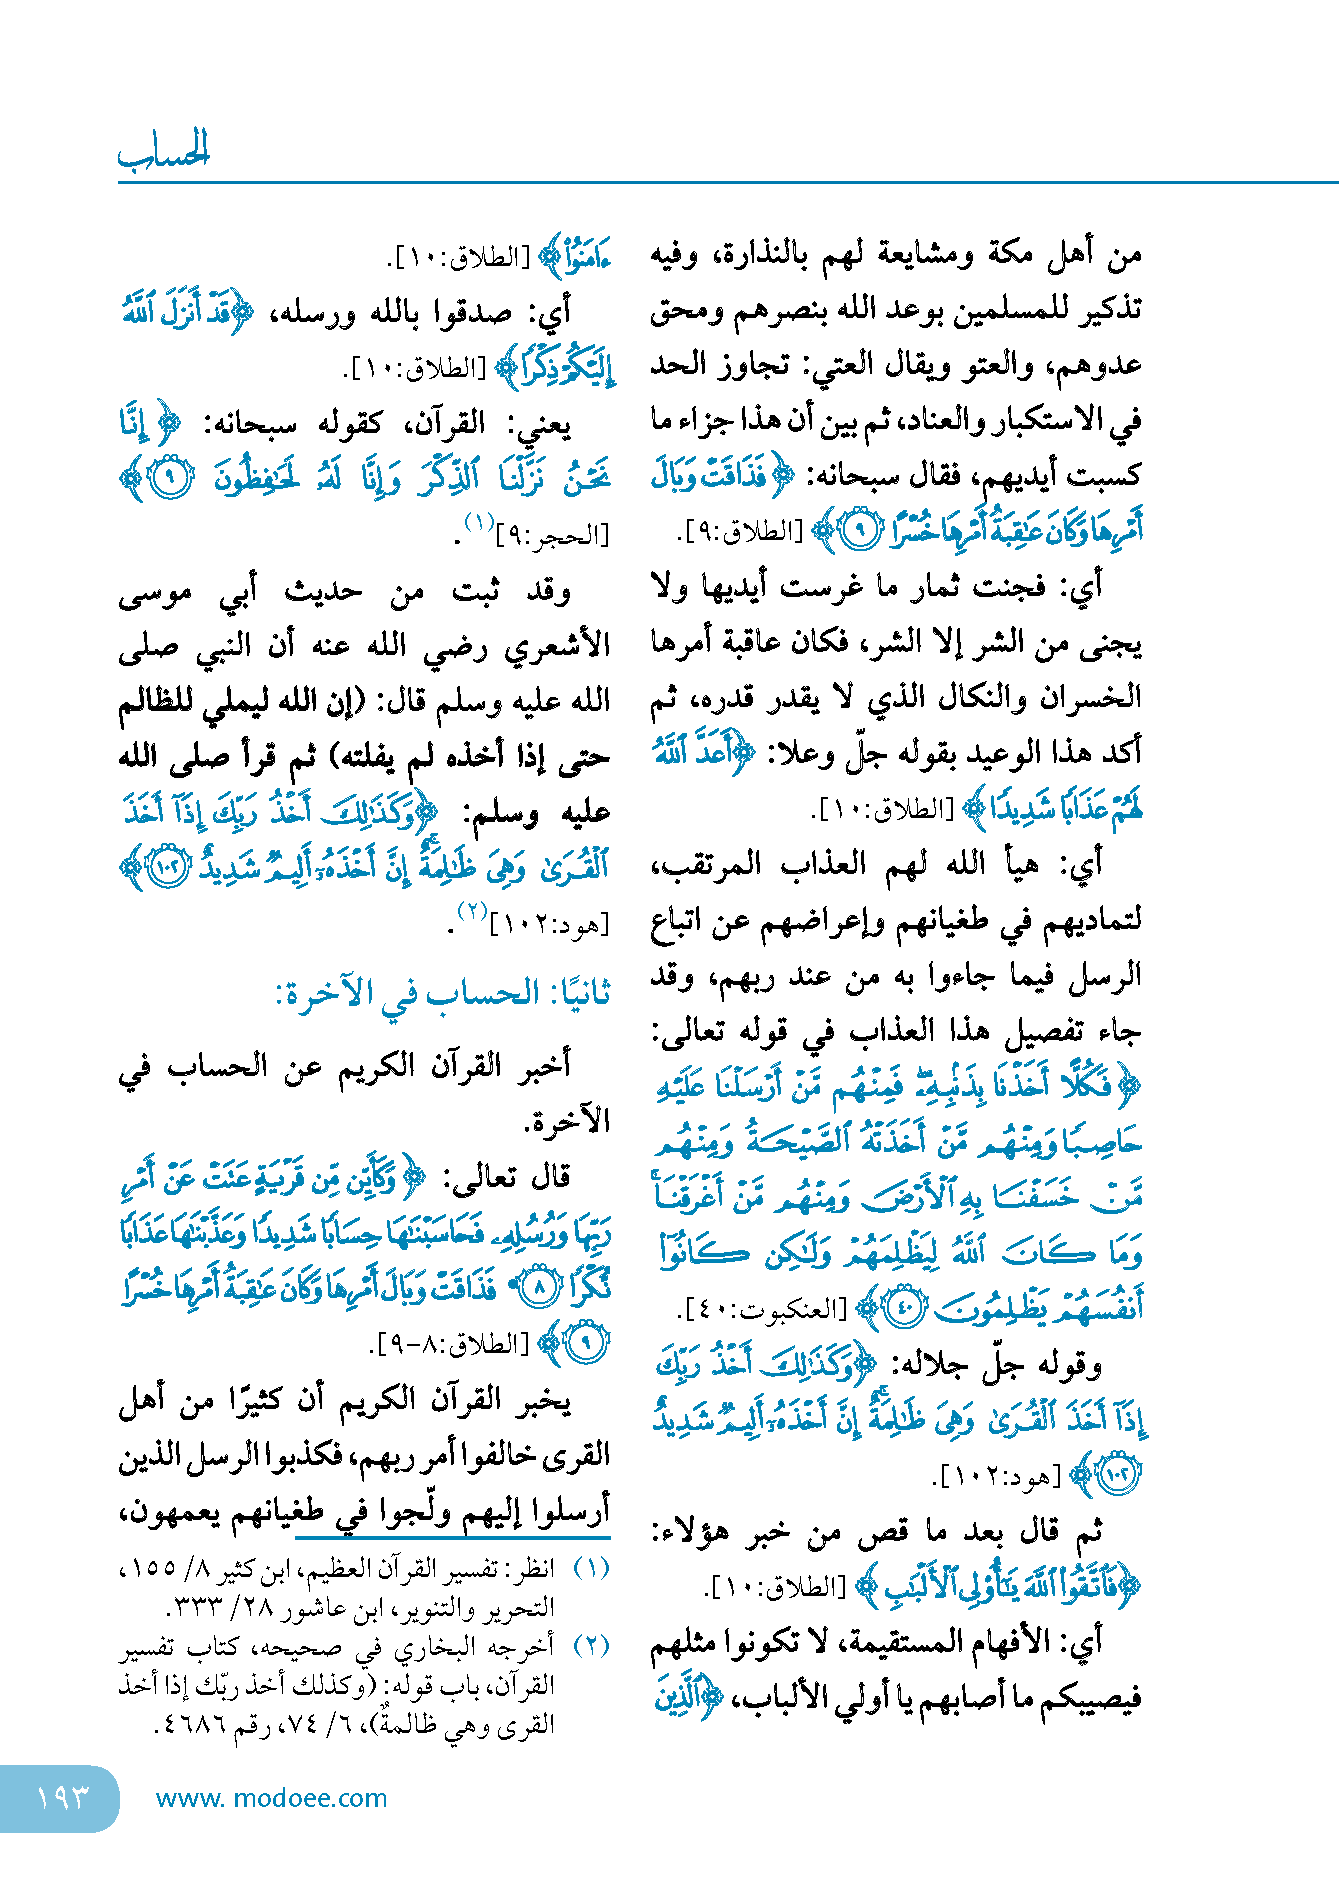 الحساب
من أهل مكة ومشايعة لهم بالنذارة، وفيه
تذكير للمسلمين بوعد الله بنصرهم ومحق
عدوهم، والعتو ويقال العتي: تجاوز الحد
في الاستكبار والعناد، ثم بين أن هذا جزاء ما
كسبت أيديهم، فقال سبحانه: ﴿فَذَاقَتْ وَبَالَ
أَمْرِهَا وَكَانَ عَٰقِبَةُ أَمْرِهَا خُسْرًا ۝٩﴾ [الطلاق:٩].
أي: فجنت ثمار ما غرست أيديها ولا
يجنى من الشر إلا الشر، فكان عاقبة أمرها
الخسران والنكال الذي لا يقدر قدره، ثم
أكد هذا الوعيد بقوله جلّ وعلا: ﴿أَعَدَّ ٱللَّهُ
لَهُمْ عَذَابًا شَدِيدًا﴾ [الطلاق:١٠].
أي: هيأ الله لهم العذاب المرتقب،
لتماديهم في طغيانهم وإعراضهم عن اتباع
الرسل فيما جاءوا به من عند ربهم، وقد
جاء تفصيل هذا العذاب في قوله تعالى:
﴿فَكُلًّا أَخَذْنَا بِذَنۢبِهِۦ ۖ فَمِنْهُم مَّنْ أَرْسَلْنَا عَلَيْهِ
حَاصِبًا وَمِنْهُم مَّنْ أَخَذَتْهُ ٱلصَّيْحَةُ وَمِنْهُم
مَّنْ خَسَفْنَا بِهِ ٱلْأَرْضَ وَمِنْهُم مَّنْ أَغْرَقْنَا ۚ
وَمَا كَانَ ٱللَّهُ لِيَظْلِمَهُمْ وَلَٰكِن كَانُوٓا۟
أَنفُسَهُمْ يَظْلِمُونَ ۝٤٠﴾ [العنكبوت:٤٠].
وقوله جلّ جلاله: ﴿وَكَذَٰلِكَ أَخْذُ رَبِّكَ
إِذَآ أَخَذَ ٱلْقُرَىٰ وَهِىَ ظَٰلِمَةٌ ۚ إِنَّ أَخْذَهُۥٓ أَلِيمٌ شَدِيدٌ
۝١٠٢﴾ [هود:١٠٢].
ثم قال بعد ما قص من خبر هؤلاء:
﴿فَٱتَّقُوا۟ ٱللَّهَ يَٰٓأُو۟لِى ٱلْأَلْبَٰبِ﴾ [الطلاق:١٠].
أي: الأفهام المستقيمة، لا تكونوا مثلهم
فيصيبكم ما أصابهم يا أولي الألباب، ﴿ٱلَّذِينَ
ءَامَنُوا۟﴾ [الطلاق:١٠].
أي: صدقوا بالله ورسله، ﴿قَدْ أَنزَلَ ٱللَّهُ
إِلَيْكُمْ ذِكْرًا﴾ [الطلاق:١٠].
يعني: القرآن، كقوله سبحانه: ﴿إِنَّا
نَحْنُ نَزَّلْنَا ٱلذِّكْرَ وَإِنَّا لَهُۥ لَحَٰفِظُونَ ۝٩﴾
[الحجر:٩](١).
وقد ثبت من حديث أبي موسى
الأشعري رضي الله عنه أن النبي صلى
الله عليه وسلم قال: (إن الله ليملي للظالم
حتى إذا أخذه لم يفلته) ثم قرأ صلى الله
عليه وسلم: ﴿وَكَذَٰلِكَ أَخْذُ رَبِّكَ إِذَآ أَخَذَ
ٱلْقُرَىٰ وَهِىَ ظَٰلِمَةٌ ۚ إِنَّ أَخْذَهُۥٓ أَلِيمٌ شَدِيدٌ ۝١٠٢﴾
[هود:١٠٢](٢).
ثانيًا: الحساب في الآخرة:
أخبر القرآن الكريم عن الحساب في
الآخرة.
قال تعالى: ﴿وَكَأَيِّن مِّن قَرْيَةٍ عَتَتْ عَنْ أَمْرِ
رَبِّهَا وَرُسُلِهِۦ فَحَاسَبْنَٰهَا حِسَابًا شَدِيدًا وَعَذَّبْنَٰهَا عَذَابًا
نُّكْرًا ۝٨ فَذَاقَتْ وَبَالَ أَمْرِهَا وَكَانَ عَٰقِبَةُ أَمْرِهَا خُسْرًا
۝٩﴾ [الطلاق:٨-٩].
يخبر القرآن الكريم أن كثيرًا من أهل
القرى خالفوا أمر ربهم، فكذبوا الرسل الذين
أرسلوا إليهم ولّجوا في طغيانهم يعمهون،
(١) انظر: تفسير القرآن العظيم، ابن كثير ٨/ ١٥٥،
التحرير والتنوير، ابن عاشور ٢٨/ ٣٣٣.
(٢) أخرجه البخاري في صحيحه، كتاب تفسير
القرآن، باب قوله: (وكذلك أخذ ربّك إذا أخذ
القرى وهي ظالمةٌ)، ٦/ ٧٤، رقم ٤٦٨٦.
١٩٣
www. modoee.com